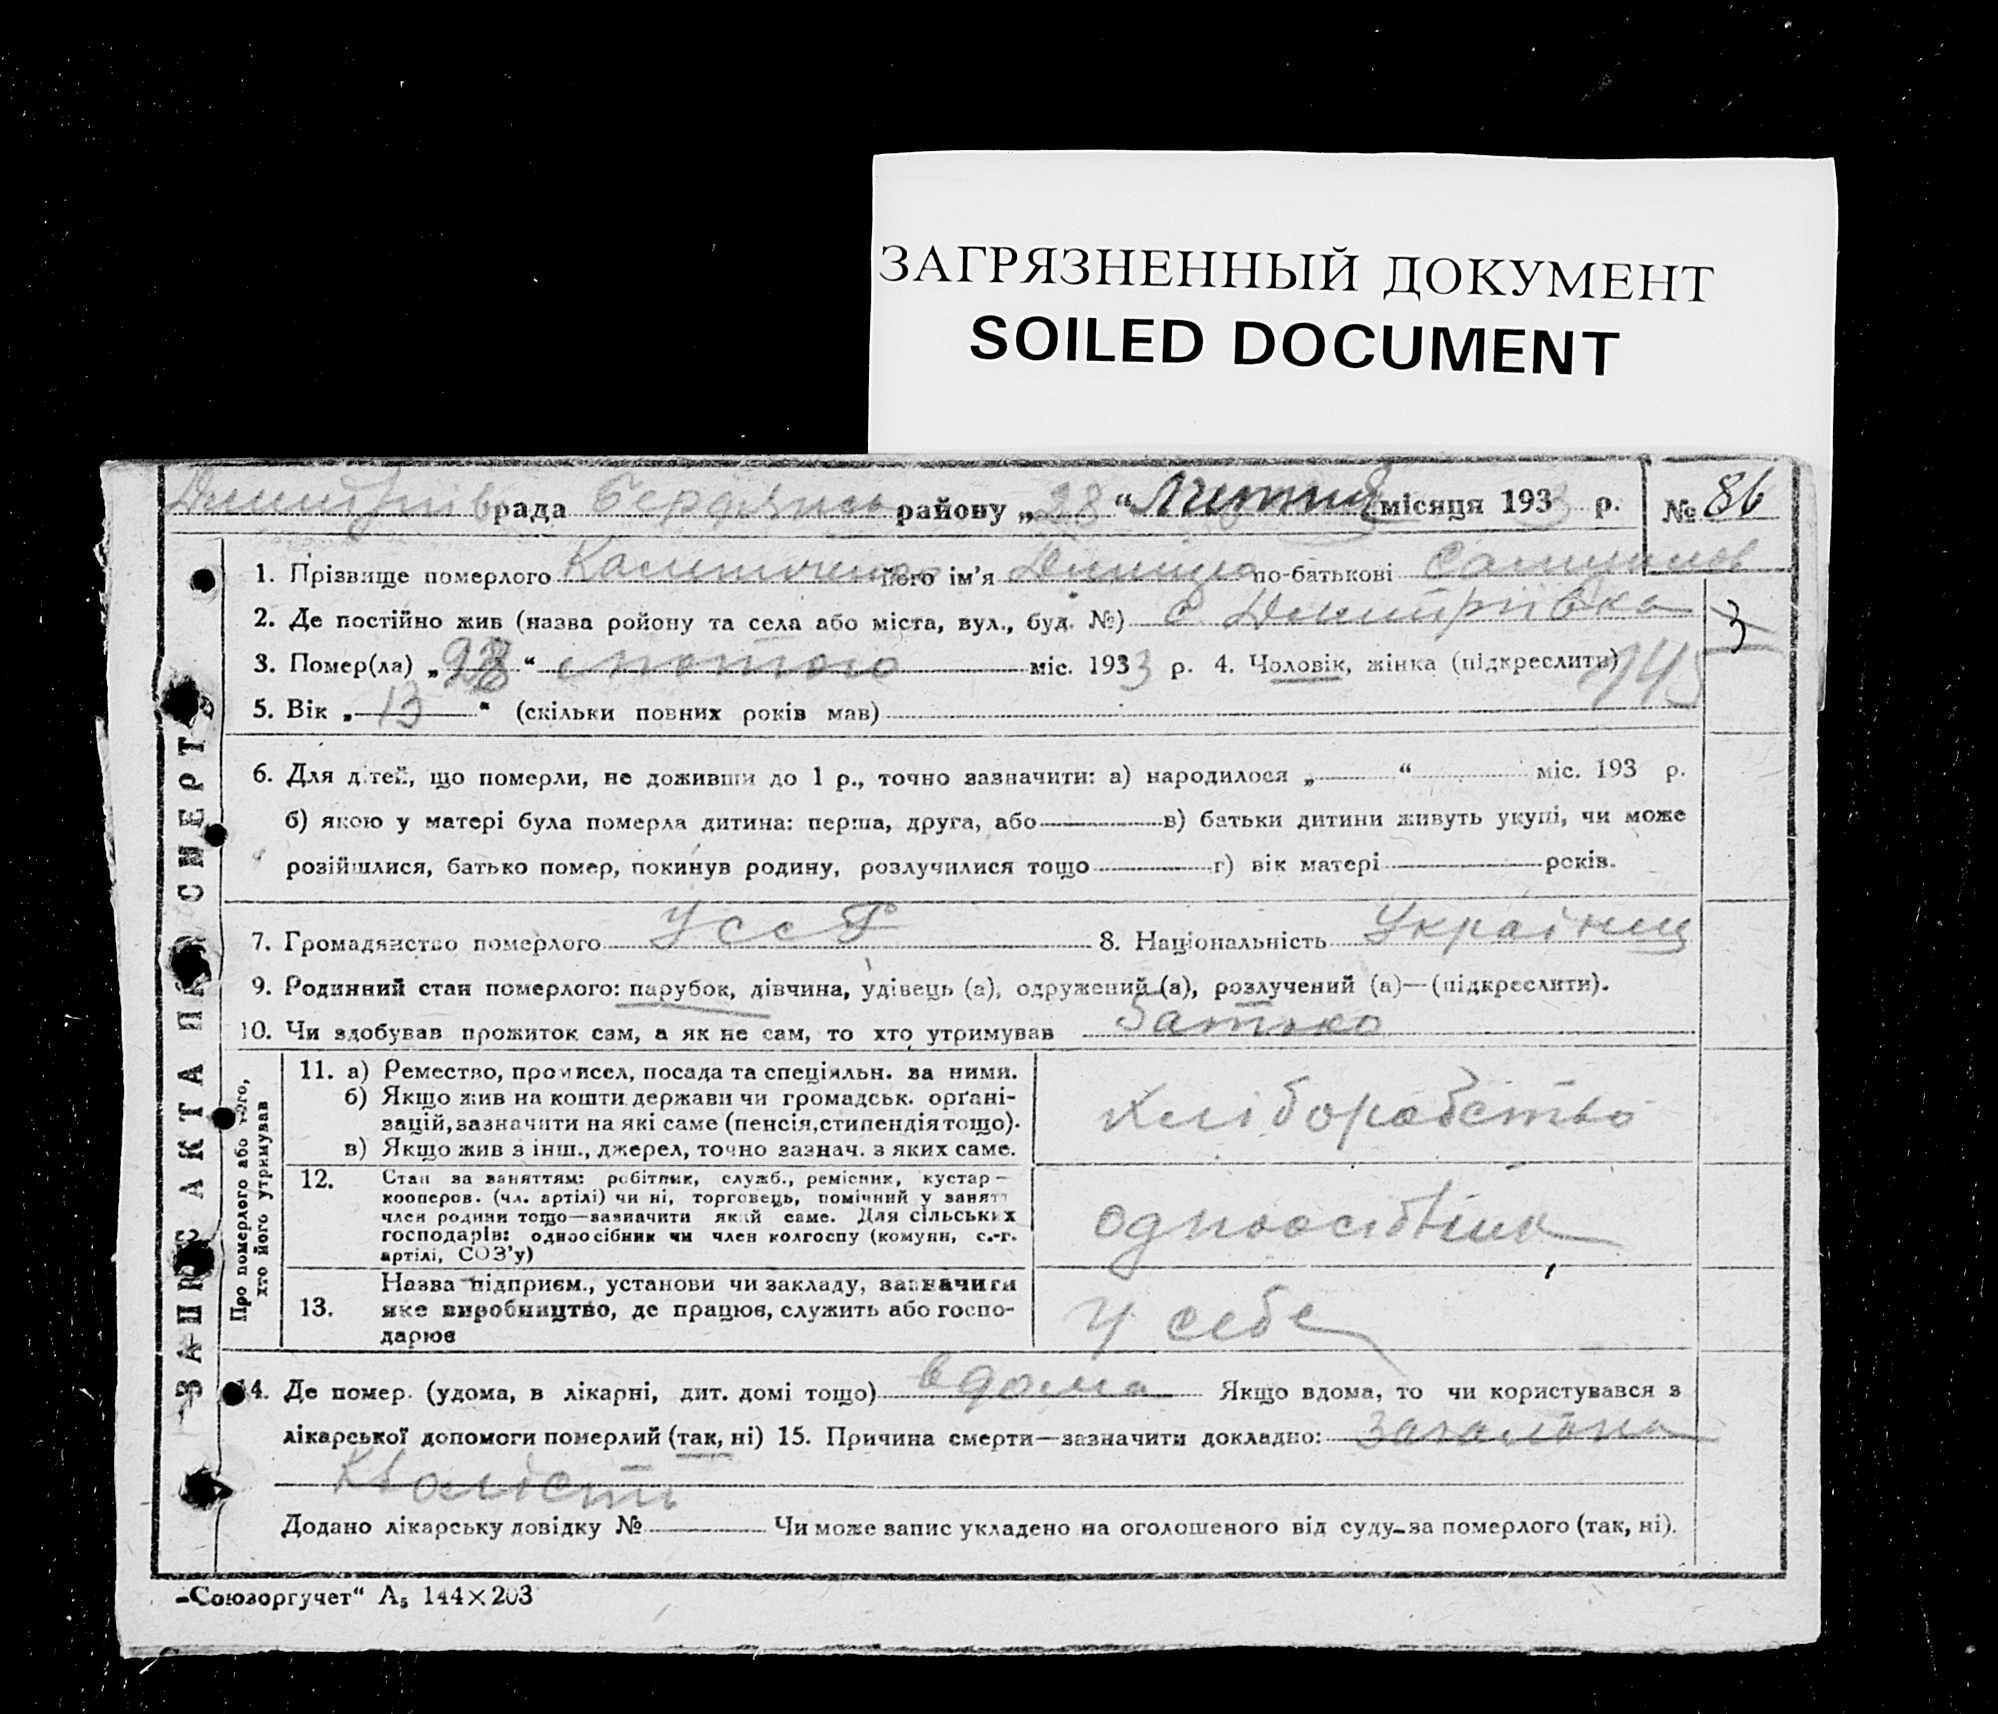 ЗАГРЯЗНЕННЫЙ ДОКУМЕНТ
SOILED DOCUMENT
рада районy „28“ місяця 1933 р. № 86
1. Прізвище померлого його ім'я по-батькові
2. Де постійно жив (назва ройону та села або міста, вул., буд. №) с. Дмитрівка
3. Помер(ла) „28“ лютого міс. 1933 р. 4. Чоловік, жінка (підкреслити) 145
3
5. Вік „13“ (скільки повних років мав)
6. Для дітей, що померли, не доживши до 1 р., точно зазначити: а) народилося „ “ міс. 193 р.
б) якою у матері була померла дитина: перша, друга, або в) батьки дитини живуть укупі, чи може
розійшлися, батько помер, покинув родину, розлучилися тощо г) вік матері років.
7. Громадянство померлого УССР 8. Національність Українець
9. Родинний стан померлого: парубок, дівчина, удівець (а), одружений (а), розлучений (а)—(підкреслити).
10. Чи здобував прожиток сам, а як не сам, то хто утримував батько
ЗАПИС АКТА ПРО СМЕРТЬ
Про померлого або того,
хто його утримував
11. а) Ремество, промисел, посада та спеціяльн. за ними.
б) Якщо жив на кошти держави чи громадськ. орґані-
зацій, зазначити на які саме (пенсія, стипендія тощо).
в) Якщо жив з інш., джерел, точно зазнач. з яких саме.
хліборобство
12. Стан за заняттям: робітник, служб., ремісник, кустар—
кооперов. (чл. артілі) чи ні, торговець, помічний у занятт
член родини тощо—зазначити який саме. Для сільських
господарів: одноосібник чи член колгоспу (комуни, с.-г.
артілі, СОЗ'у)
одноосібник
13. Назва підприєм., установи чи закладу, зазначити
яке виробництво, де працює, служить або госпо-
дарює
у себе
14. Де помер. (удома, в лікарні, дит. домі тощо) вдома Якщо вдома, то чи користувався з
лікарської допомоги померлий (так, ні) 15. Причина смерти—зазначити докладно: загальна
кволість
Додано лікарську довідку № Чи може запис укладено на оголошеного від суду за померлого (так, ні).
„Союзоргучет“ А₅ 144×203